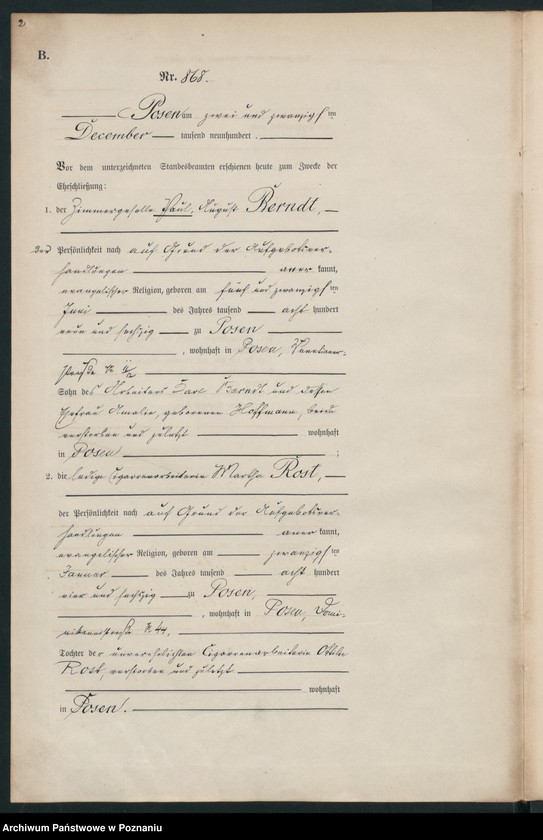 2
B.
Nr. 868.
Posen am zwei und zwanzigsten
December tausend neunhundert
Vor dem unterzeichneten Standesbeamten erschienen heute zum Zwecke der
Eheschließung:
1. der Zimmergeselle Paul, August Berndt,
Persönlichkeit nach auf Grund der Aufgebotsver-
handlungen anerkannt,
evangelischer Religion, geboren am fünf und zwanzigsten
Juni des Jahres tausend acht hundert
neun und sechzig zu Posen
, wohnhaft in Posen,
straße
Sohn des Arbeiters Karl Berndt und dessen
Ehefrau Amalie, geborenen Hoffmann, beide
verstorben und zuletzt wohnhaft
in Posen ;
2. die ledige Cigarrenarbeiterin Martha Rost,
der Persönlichkeit nach auf Grund der Aufgebotsver-
handlungen anerkannt,
evangelischer Religion, geboren am zwanzigsten
Januar des Jahres tausend acht hundert
vier und sechzig zu Posen,
, wohnhaft in Posen, Domi-
nikanerstraße N. 44,
Tochter der unverehelichten Cigarrenarbeiterin Ottilie
Rost, verstorben und zuletzt
wohnhaft
in Posen.
Archiwum Państwowe w Poznaniu